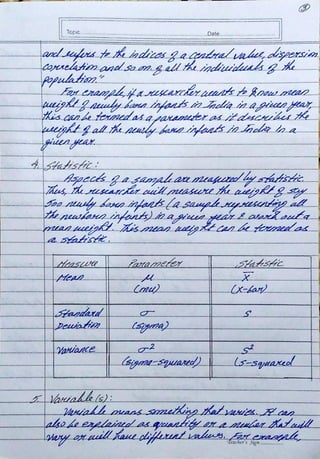 ③
Topic Date
and refers to the indices of a central value, dispersion
correlation and so on of all the individuals of the
population."
For example, if a researcher wants to know mean
weight of newly born infants in India in a given year,
this can be termed as a parameter as it describes the
weight of all the newly born infants in India in a
given year.
4. Statistic:
Aspects of a sample are measured by statistic.
Thus, the researcher will measure the weight of say
500 newly born infants (a sample representing all
the newborn infants) in a given year & work out a
mean weight. This mean weight can be termed as
a statistic.
Measure Parameter Statistic
Mean μ x̄
(mu) (x-bar)
Standard σ s
Deviation (sigma)
Variance σ² s²
(sigma-squared) (s-squared
5. Variable(s):
Variable means something that varies. It can
also be explained as quantity or a number that will
vary or will have different values. For example,
Teacher's Sign